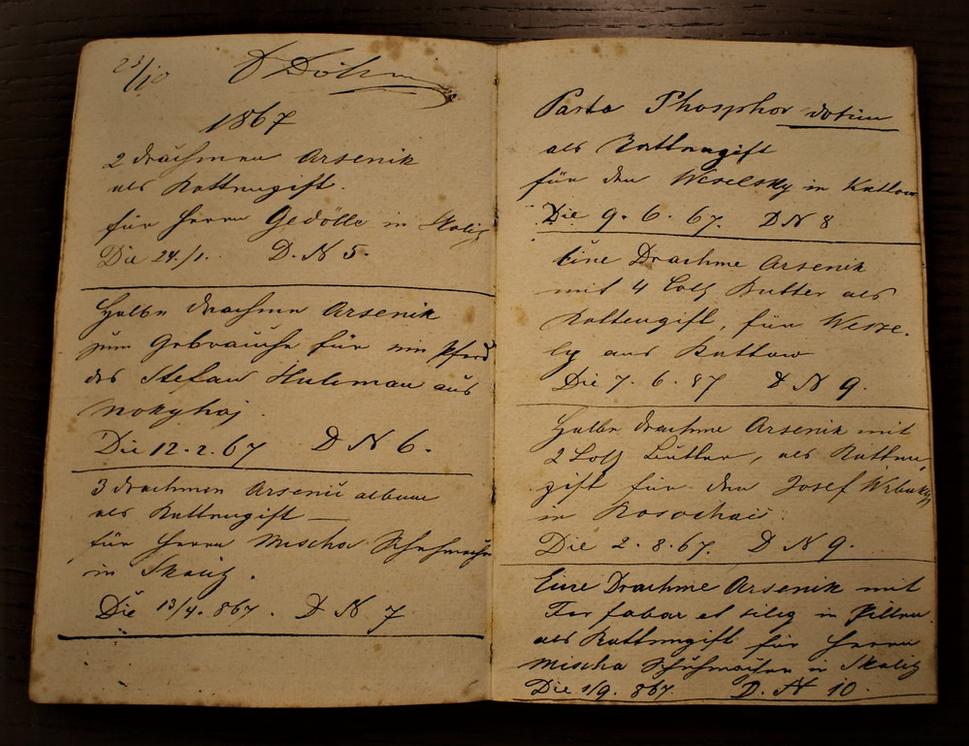 23/10 D Döhm
1867
2 Drachmen Arsenik
als Rattengift.
für Herrn Gedölle in Skalitz
Die 24./1. D. N 5.
Halbe Drachme Arsenik
zum Gebrauche für ein Pferd
des Stefan Huleman aus
Die 12.2.67 D N 6.
3 Drachmen Arsenic album
als Rattengift
für Herrn Mischa Schuhmacher
in Skalitz.
Die 13/4. 867. D N 7
Pasta Phosphor
als Rattengift
für den Weselsky in Kuttow
Die 9. 6. 67. D N 8
Eine Drachme Arsenik
mit 4 Loth Butter als
Rattengift, für Wesse-
ly aus Kuttow
Die 7. 6. 87 D N 9.
Halbe Drachme Arsenik mit
2 Loth Butter, als Ratten
gift für den Josef
in
Die 2. 8. 67. D N 9.
Eine Drachme Arsenik mit
in
als Rattengift für Herrn
Mischa Schuhmacher in Skalitz
Die 1/9. 867. D. N 10.